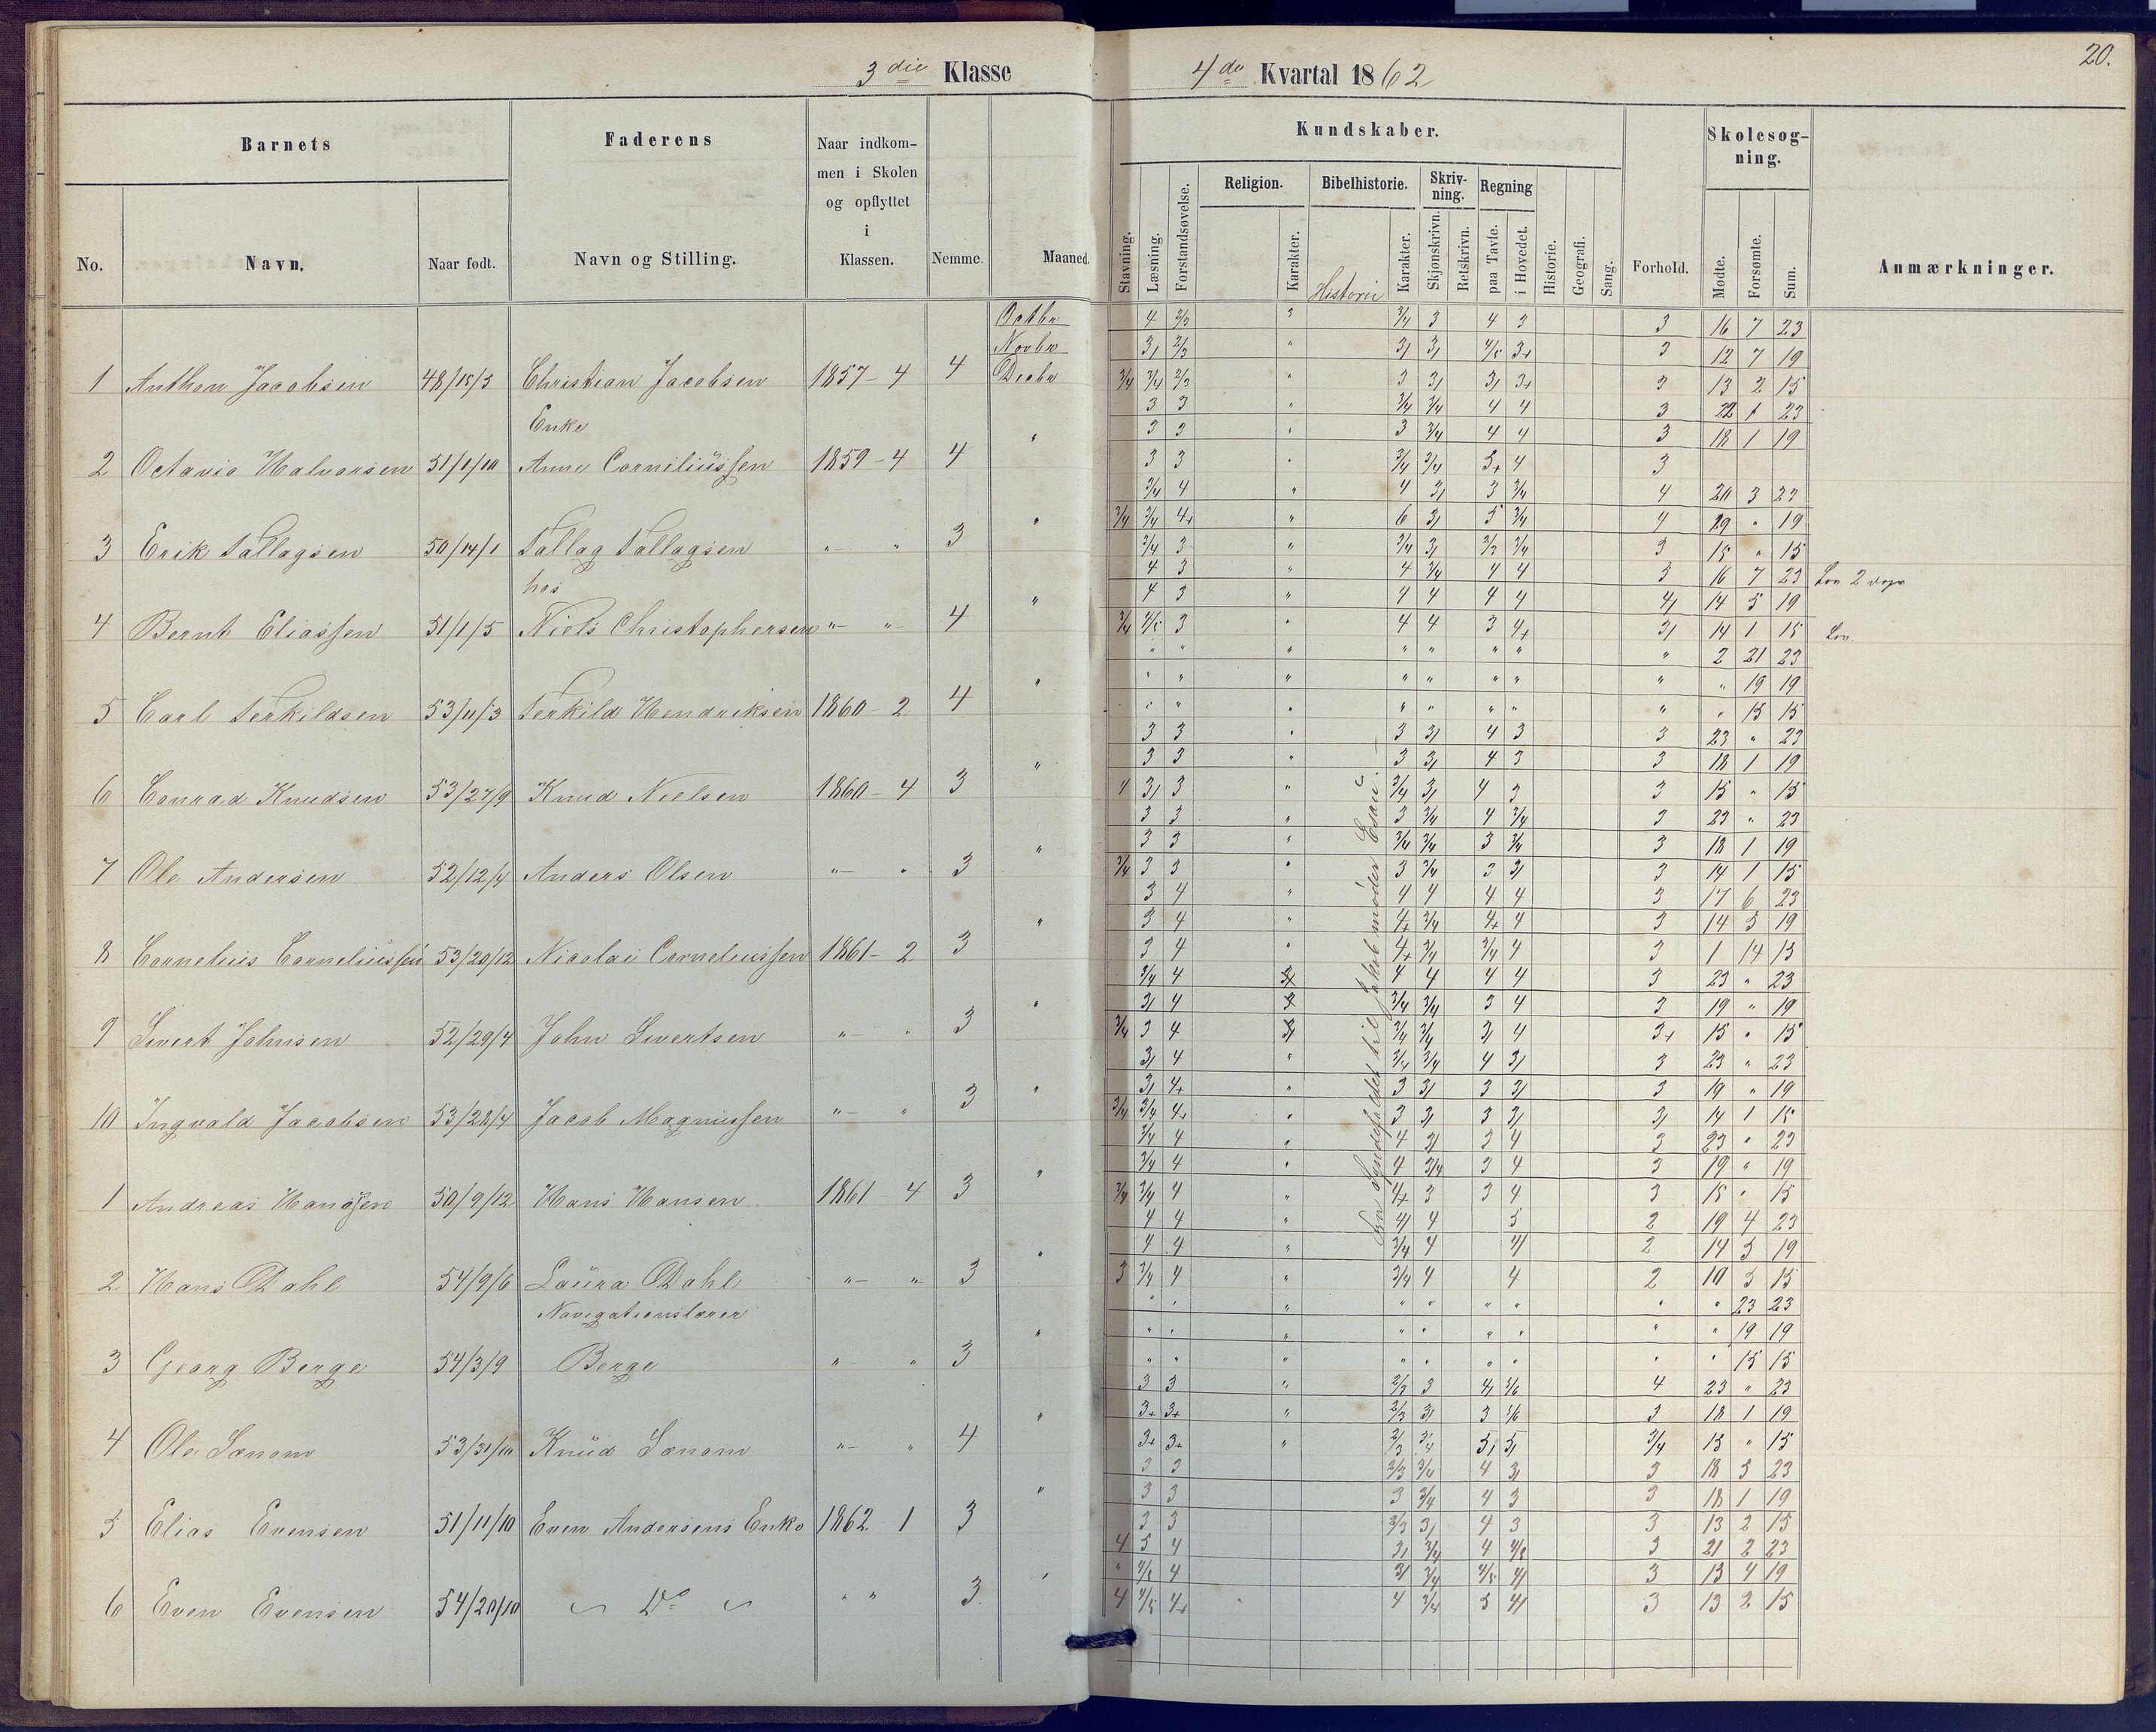 20.
3die Klasse
4de Kvartal 1862
Barnets
Faderens
Naar indkommen i Skolen og opflyttet i Klassen.
Kundskaber.
Skolesøgning.
No. Navn. Naar født. Navn og Stilling. Nemme. Maaned.
Stavning. Læsning. Forstandsøvelse. Religion. Karakter. Bibelhistorie. Historie Karakter. Skrivning. Skjønskrivn. Retskrivn. Regning paa Tavle. i Hovedet. Historie. Geografi. Sang. Forhold. Mødte. Forsømte. Sum. Anmærkninger.
Octbr 4 2/3 3 3/4 3 4 3 3 16 7 23
Novbr 3/ 2/3 " 3/ 3/ 4/5 3+ 3 12 7 19
1 Anthon Jacobsen 48/15/3 Christian Jacobsen 1857-4 4 Decbr 3/4 3/4 2/3 " 3 3/ 3/ 3+ 3 13 2 15
3 3 " 3/4 3/4 4 4 3 22 1 23
Enke 3 3 " 3 3/4 4 4 3 18 1 19
2 Octavio Halvorsen 51/1/10 Anne Corneliussen 1859-4 4 " 3 3 " 3/4 3/4 3+ 4 3
3/4 4 " 4 3/ 3 3/4 4 20 3 23
3/4 3/4 4+ " 6 3/ 5 3/4 4 29 " 19
3 Erik Tallagsen 50/14/1 Tallag Tallagsen "- " 3 " 3/4 3 " 3/4 3/ 2/3 3/4 3 15 " 15
4 3 " 4 3/4 4 4 3 16 7 23
hos 4 3 " 4 4 4 4 4/ 14 5 19
4 Bernt Eliassen 51/1/5 Niels Christophersen "- "- 4 " 3/4 4/5 3 " 4 4 3 4+ 3/ 14 1 15
" " " " " " " " 2 21 23
" " " " " " " " " 19 19
5 Carl Terkildsen 53/11/3 Terkild Hendriksen 1860-2 4 " " " " " " " " " " 15 15
3 3 " 3 3/ 4 3 3 23 " 23
3 3 " 3 3/ 4 3 3 18 1 19
6 Conrad Knudsen 53/27/9 Knud Nielsen 1860-4 3 " 4 3/ 3 " 3/4 3/ 4 3 3 15 " 15
3 3 " 3 3/4 4 3/4 3 23 " 23
3 3 " 3/4 3/4 3 3/4 3 18 1 19
7 Ole Andersen 52/12/4 Anders Olsen "- " 3 " 3/4 3 3 " 3 3/4 3 3/ 3 14 1 15
3 4 " 4 4 4 4 3 17 6 23
3 4 " 4+ 3/4 4+ 4 3 14 5 19
8 Cornelius Corneliussen 53/20/12 Nicolai Corneliussen 1861-2 3 " 3 4 " 4+ 3/4 3/4 4 3 1 14 15
3/4 4 4 4 4 4 3 23 " 23
3/ 4 3/4 3/4 3 4 3 19 " 19
9 Sivert Johnsen 52/29/4 John Sivertsen "- " 3 " 3/4 3 4 3/4 3/4 3/ 4 3+ 15 " 15
3/ 4 " 3/4 3/4 4 3/ 3 23 " 23
3/ 4+ " 3 3/ 3 3/ 3 19 " 19
10 Ingvald Jacobsen 53/28/4 Jacob Magnussen "- " 3 " 3/4 3/4 4+ " 3 3/ 3 3/ 3/ 14 1 15
3/4 4 " 4 3/ 3 4 3 23 " 23
3/4 4 " 4 3/4 3 4 3 19 " 19
1 Andreas Hansen 50/9/12 Hans Hansen 1861 4 3 " 3/4 3/4 4 " 4+ 3 3 4 3 15 " 15
4 4 " 4/ 4 5 2 19 4 23
4 4 " 3/4 4 4/ 2 14 5 19
2 Hans Dahl 54/9/6 Laura Dahl "- "- 3 " 3 3/4 4 " 3/4 4 4 2 10 5 15
" " " " " " " " " 23 23
Navigationslærer " " " " " " " " " 19 19
3 Georg Berge 54/3/9 Berge "- " 3 " " " " " " " " " " 15 15
3 3 " 2/3 3 4/ 5/6 4 23 " 23
3+ 3+ " 2/3 3/ 3 5/6 3 18 1 19
4 Ole Sanom 53/31/10 Knud Sanom "- " 4 " 3+ 3+ " 2/3 3/4 5/ 5/ 3/4 15 " 15
3 3 2/3 3/4 4 3/ 3 18 5 23
3 3 3 3/4 4 3 3 18 1 19
5 Elias Evensen 51/11/10 Even Andersens Enke 1862 1 3 " 3 3 2/3 3/ 4 3 3 13 2 15
4 5 4 3/ 3/4 4 4/5 3 21 2 23
" 4/5 4 3/ 3/4 4/5 4/ 3 13 4 19
6 Even Evensen 54/20/10 Do " " 3 " 4 4/5 4+ 4 3/4 5 4/ 3 13 2 15
Fra Syndefaldet til Jakob møder Esau.